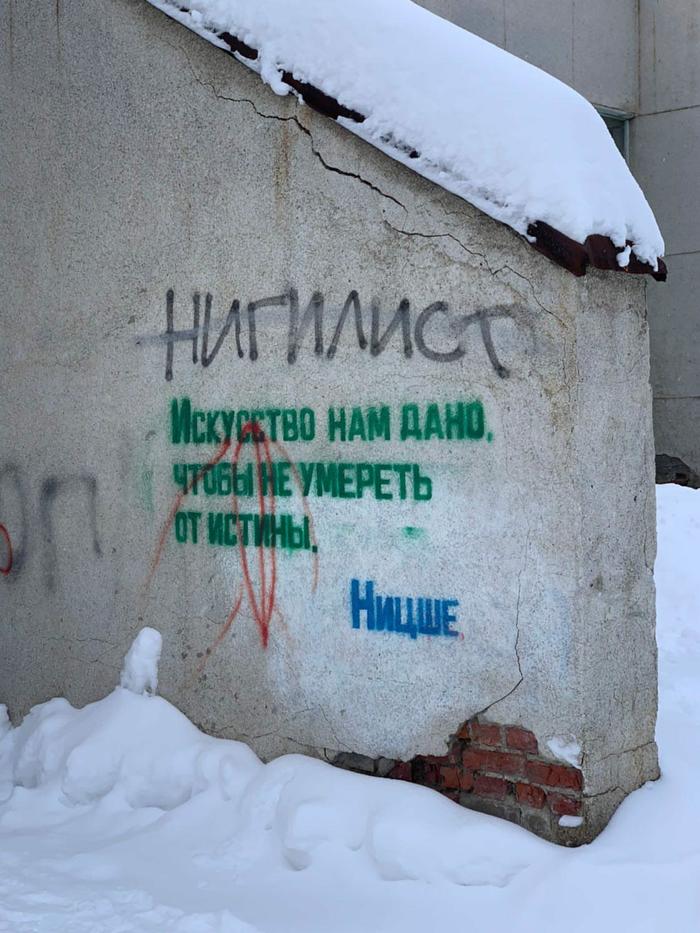 НИГИЛИСТ
Искусство нам дано,
чтобы не умереть
от истины.
Ницше
оп